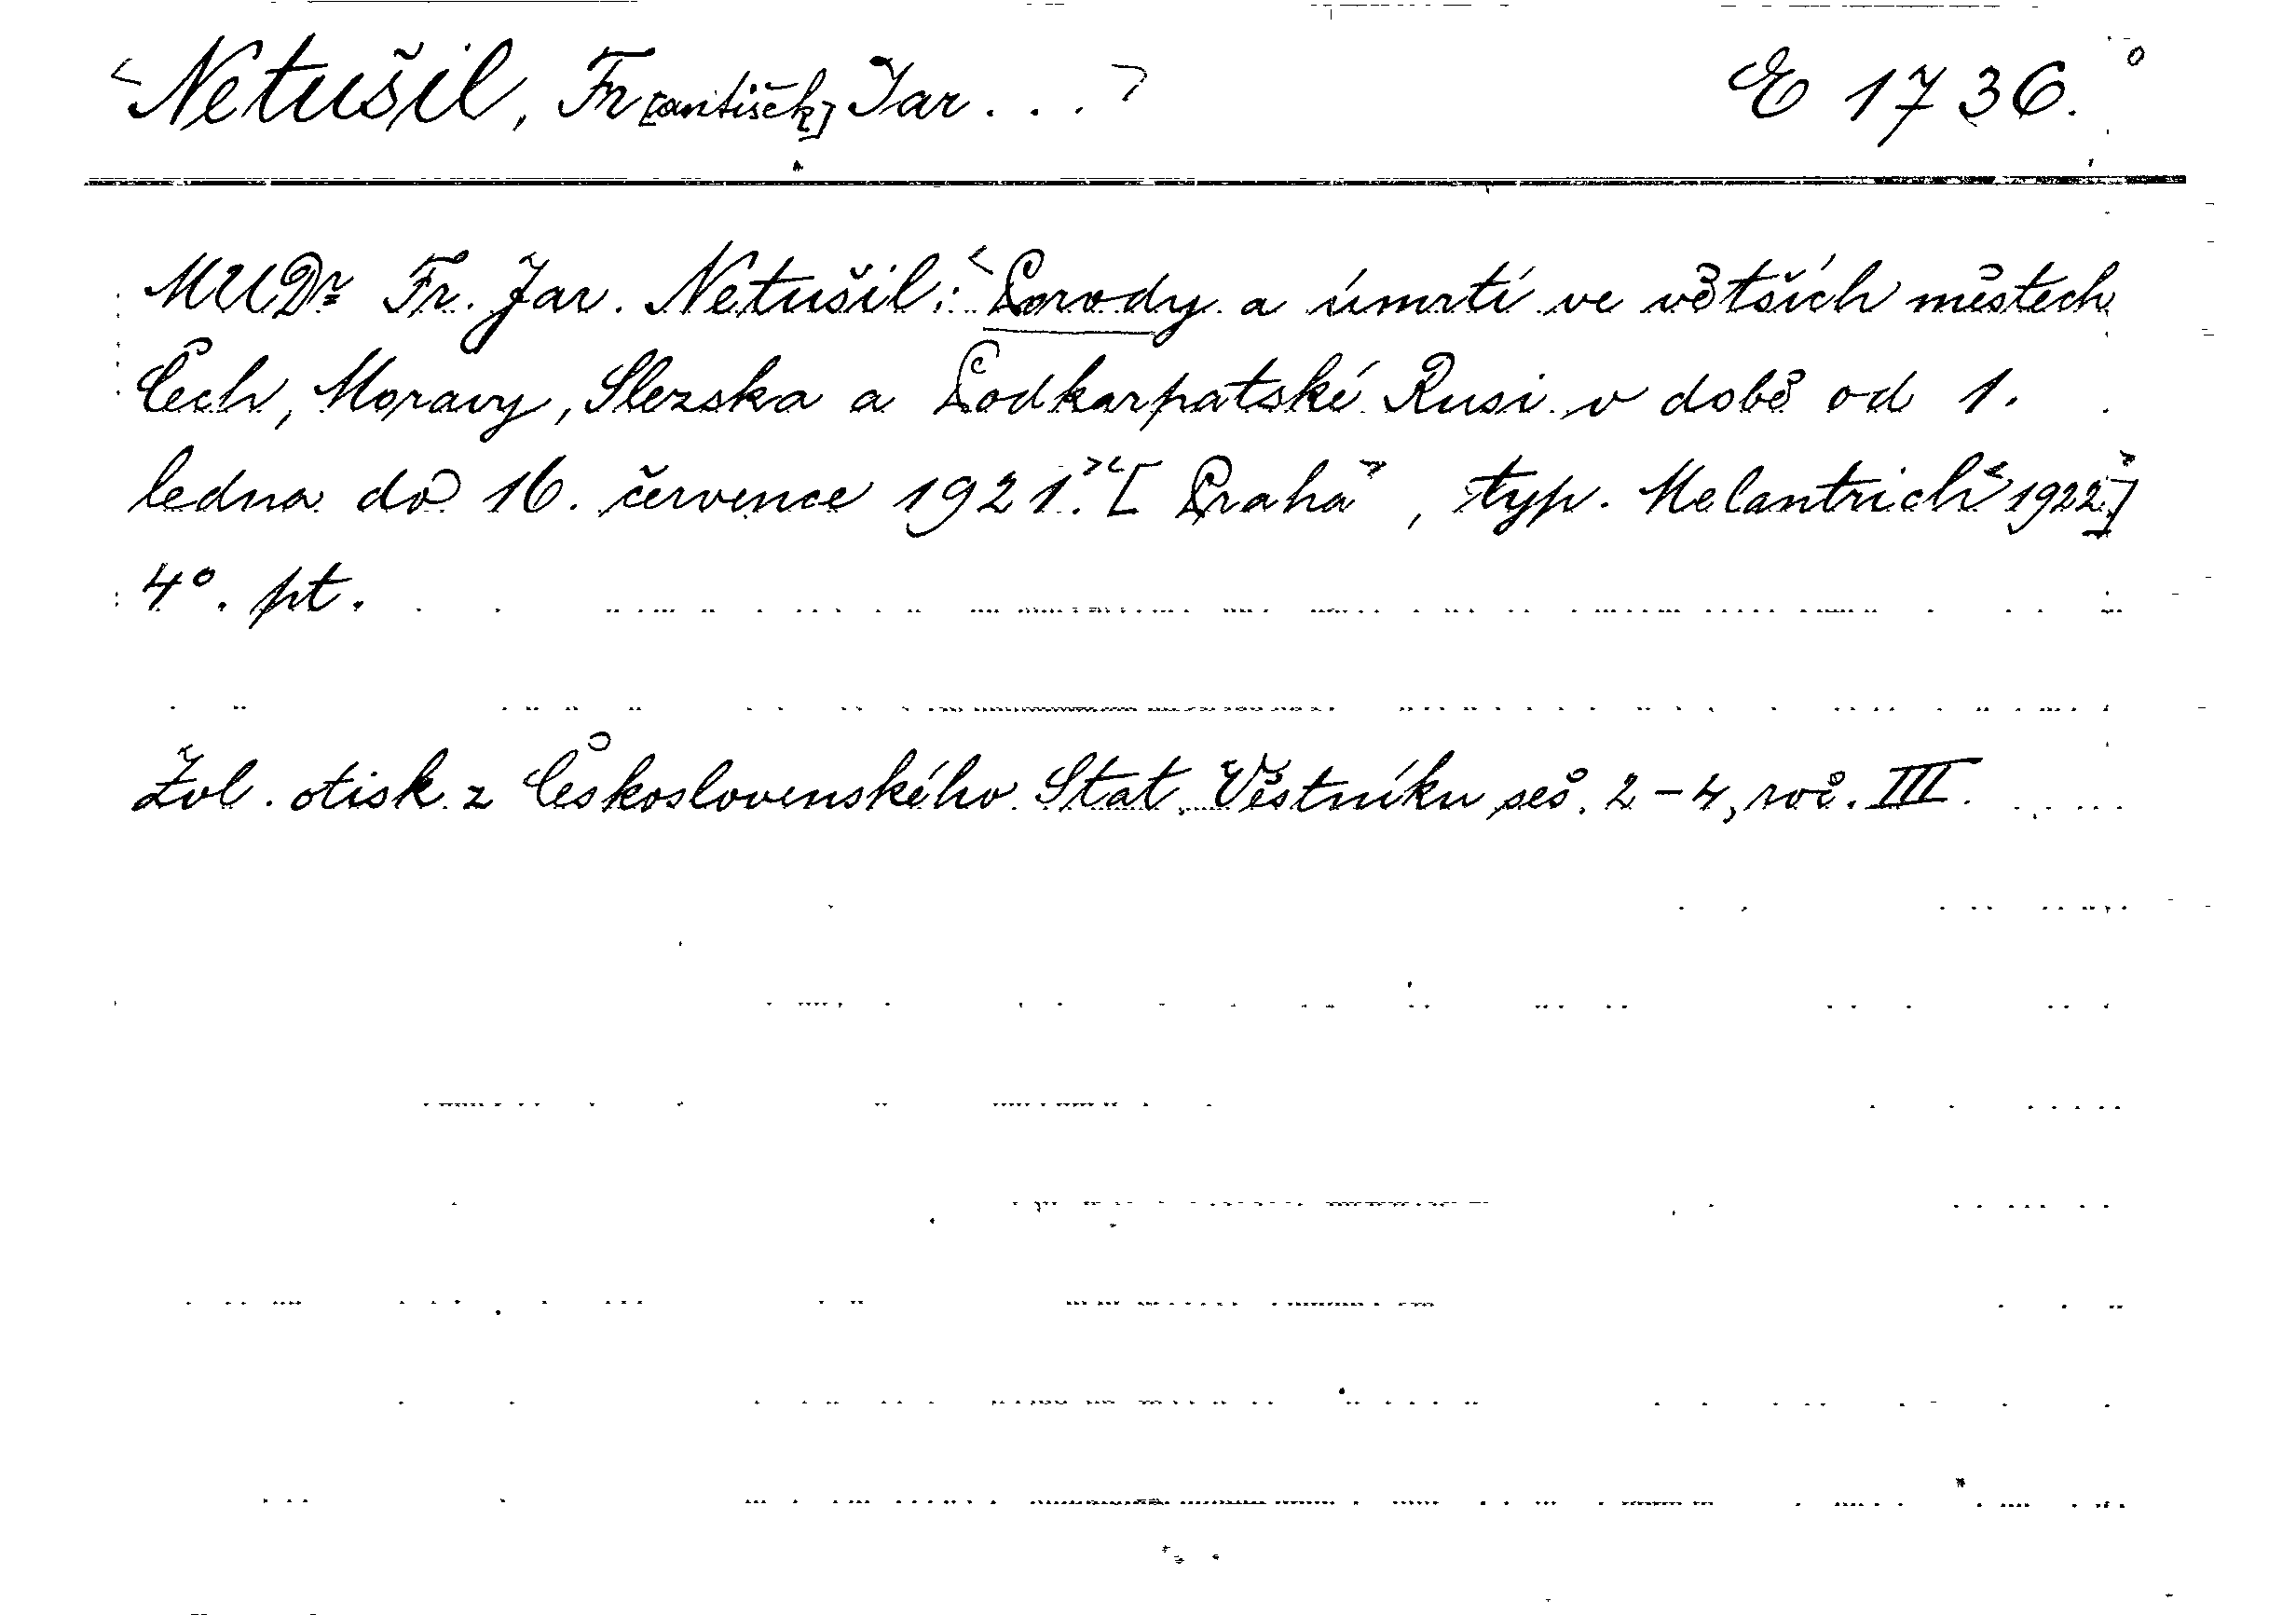 <Netušil, Fr[antišek] Jar...> E 1736.
MUDr Fr. Jar. Netušil: <Porody a úmrtí ve větších městech
Čech, Moravy, Slezska a Podkarpatské Rusi v době od 1.
ledna do 16. července 1921.> <[Praha>, typ. Melantrich <1922>]
4°. pt.
Zvl. otisk z Československého Stat. Věstníku seš. 2-4, roč. III.